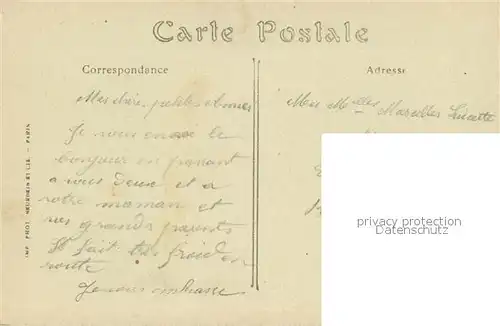 Carte Postale
Correspondance
Adresse
Mes chères petites
Je vous envoi le
bonjour en passant
a vous deux et a
votre maman et
vos grands parents
Il fait très froid en
route
Je vous embrasse
Melles Marcelles Lucette
privacy protection
Datenschutz
IMP. PHOT. NEURDEIN ET CIE. — PARIS